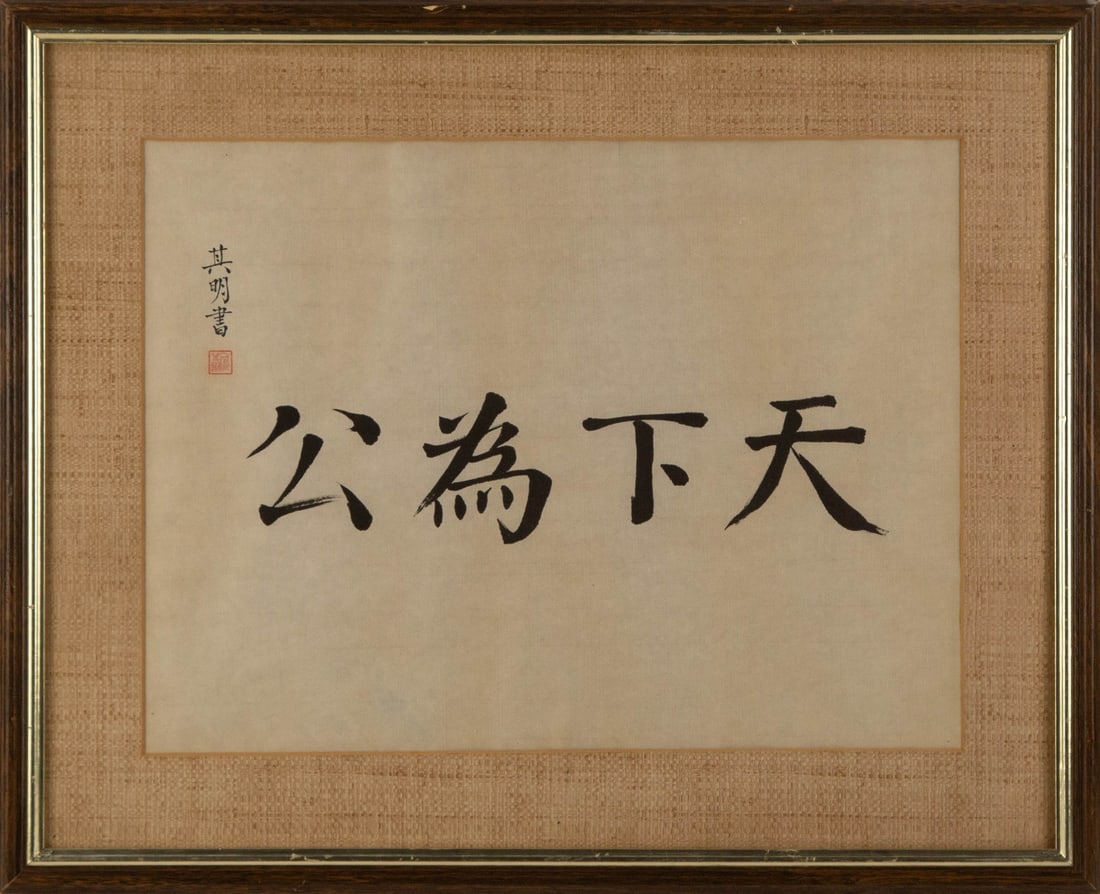 天下為公
其明書